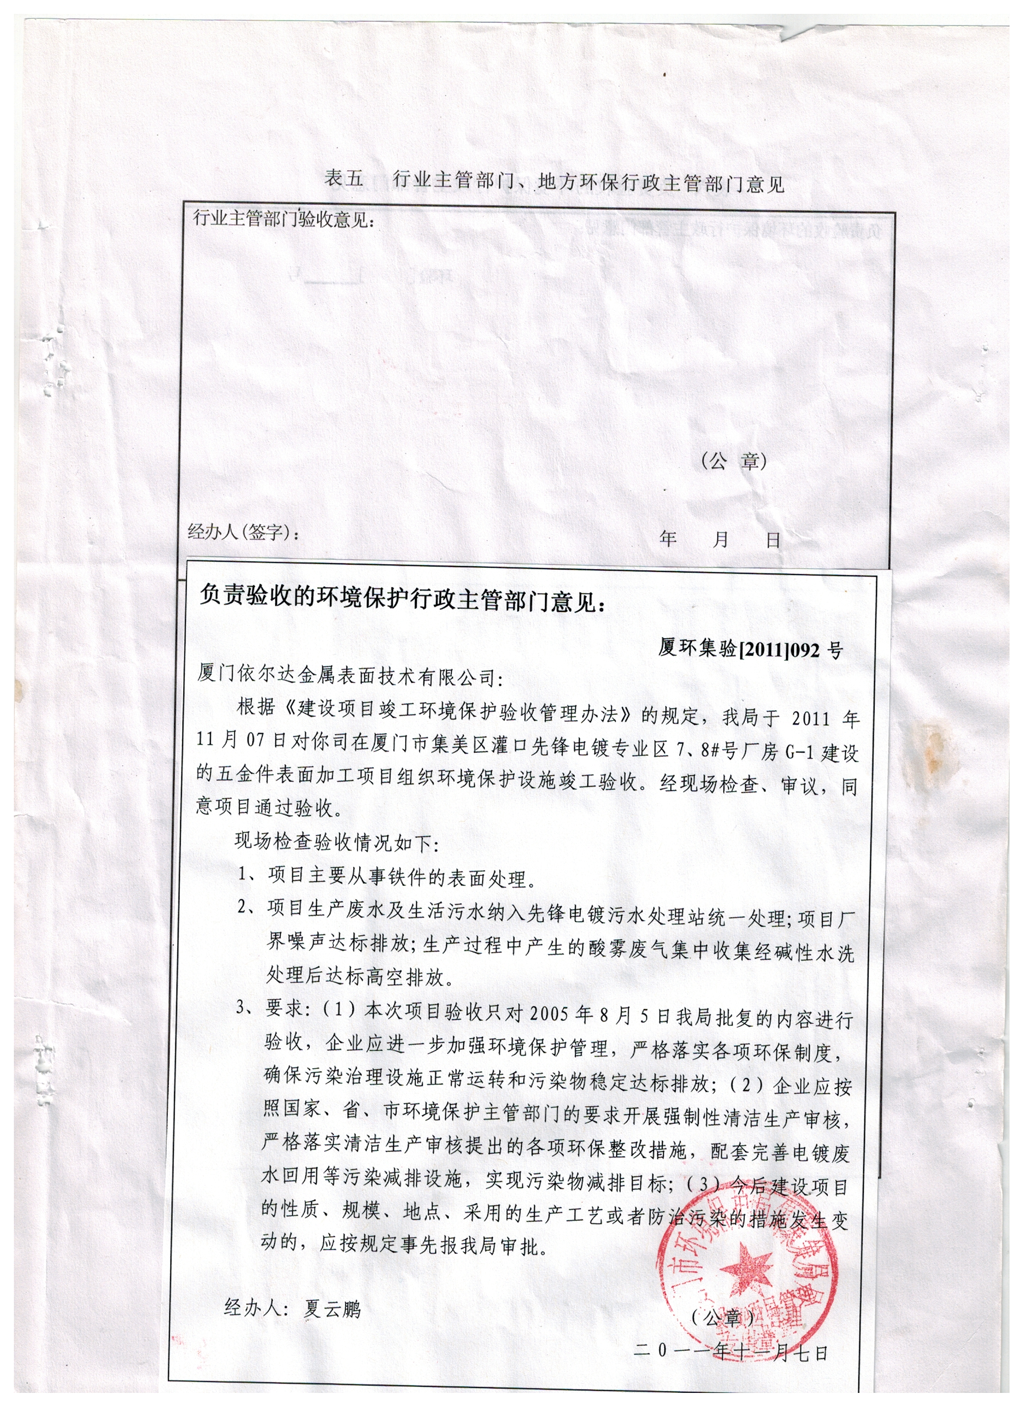 表五 行业主管部门、地方环保行政主管部门意见
行业主管部门验收意见：
（公 章）
经办人（签字）：
年 月 日
负责验收的环境保护行政主管部门意见：
厦环集验[2011]092 号
厦门依尔达金属表面技术有限公司：
根据《建设项目竣工环境保护验收管理办法》的规定，我局于 2011 年
11 月 07 日对你司在厦门市集美区灌口先锋电镀专业区 7、8#号厂房 G-1 建设
的五金件表面加工项目组织环境保护设施竣工验收。经现场检查、审议，同
意项目通过验收。
现场检查验收情况如下：
1、项目主要从事铁件的表面处理。
2、项目生产废水及生活污水纳入先锋电镀污水处理站统一处理；项目厂
界噪声达标排放；生产过程中产生的酸雾废气集中收集经碱性水洗
处理后达标高空排放。
3、要求：（1）本次项目验收只对 2005 年 8 月 5 日我局批复的内容进行
验收，企业应进一步加强环境保护管理，严格落实各项环保制度，
确保污染治理设施正常运转和污染物稳定达标排放；（2）企业应按
照国家、省、市环境保护主管部门的要求开展强制性清洁生产审核，
严格落实清洁生产审核提出的各项环保整改措施，配套完善电镀废
水回用等污染减排设施，实现污染物减排目标；（3）今后建设项目
的性质、规模、地点、采用的生产工艺或者防治污染的措施发生变
动的，应按规定事先报我局审批。
经办人：夏云鹏
（公章）
二０一一年十一月七日